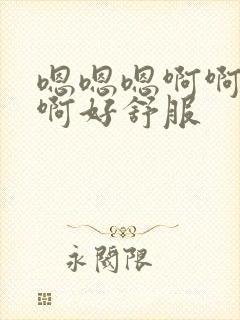 嗯嗯嗯啊啊
啊好舒服
永阅限